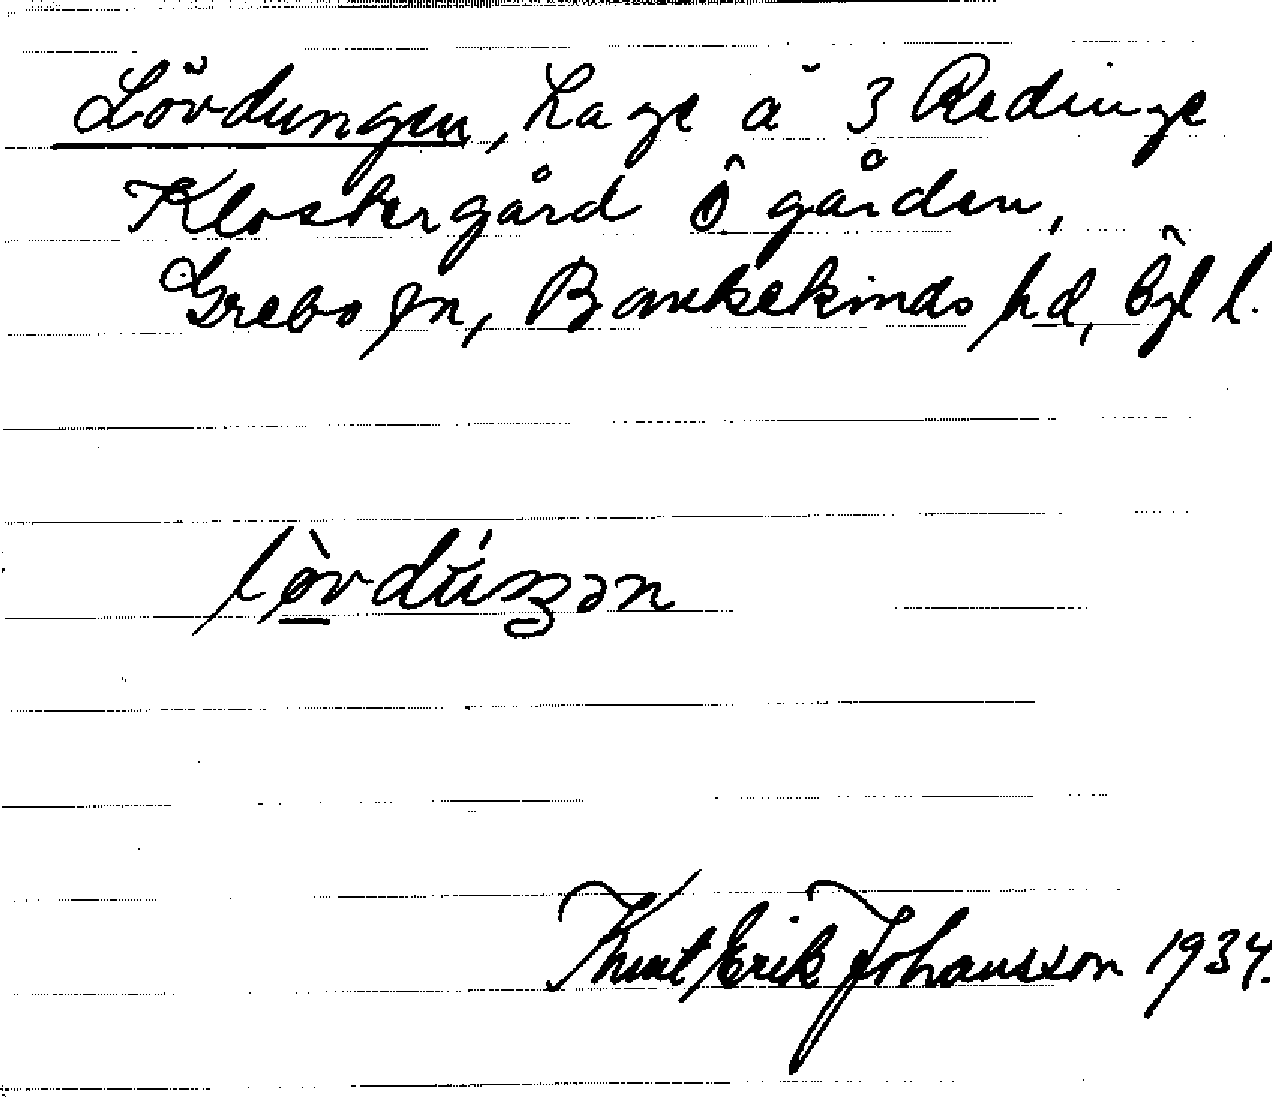 Lövdungen, Hage å 3 Redinge
Klostergård Ö gården,
Grebo sn, Bankekinds hd, Ögl l.
Knut Erik Johansson 1934.